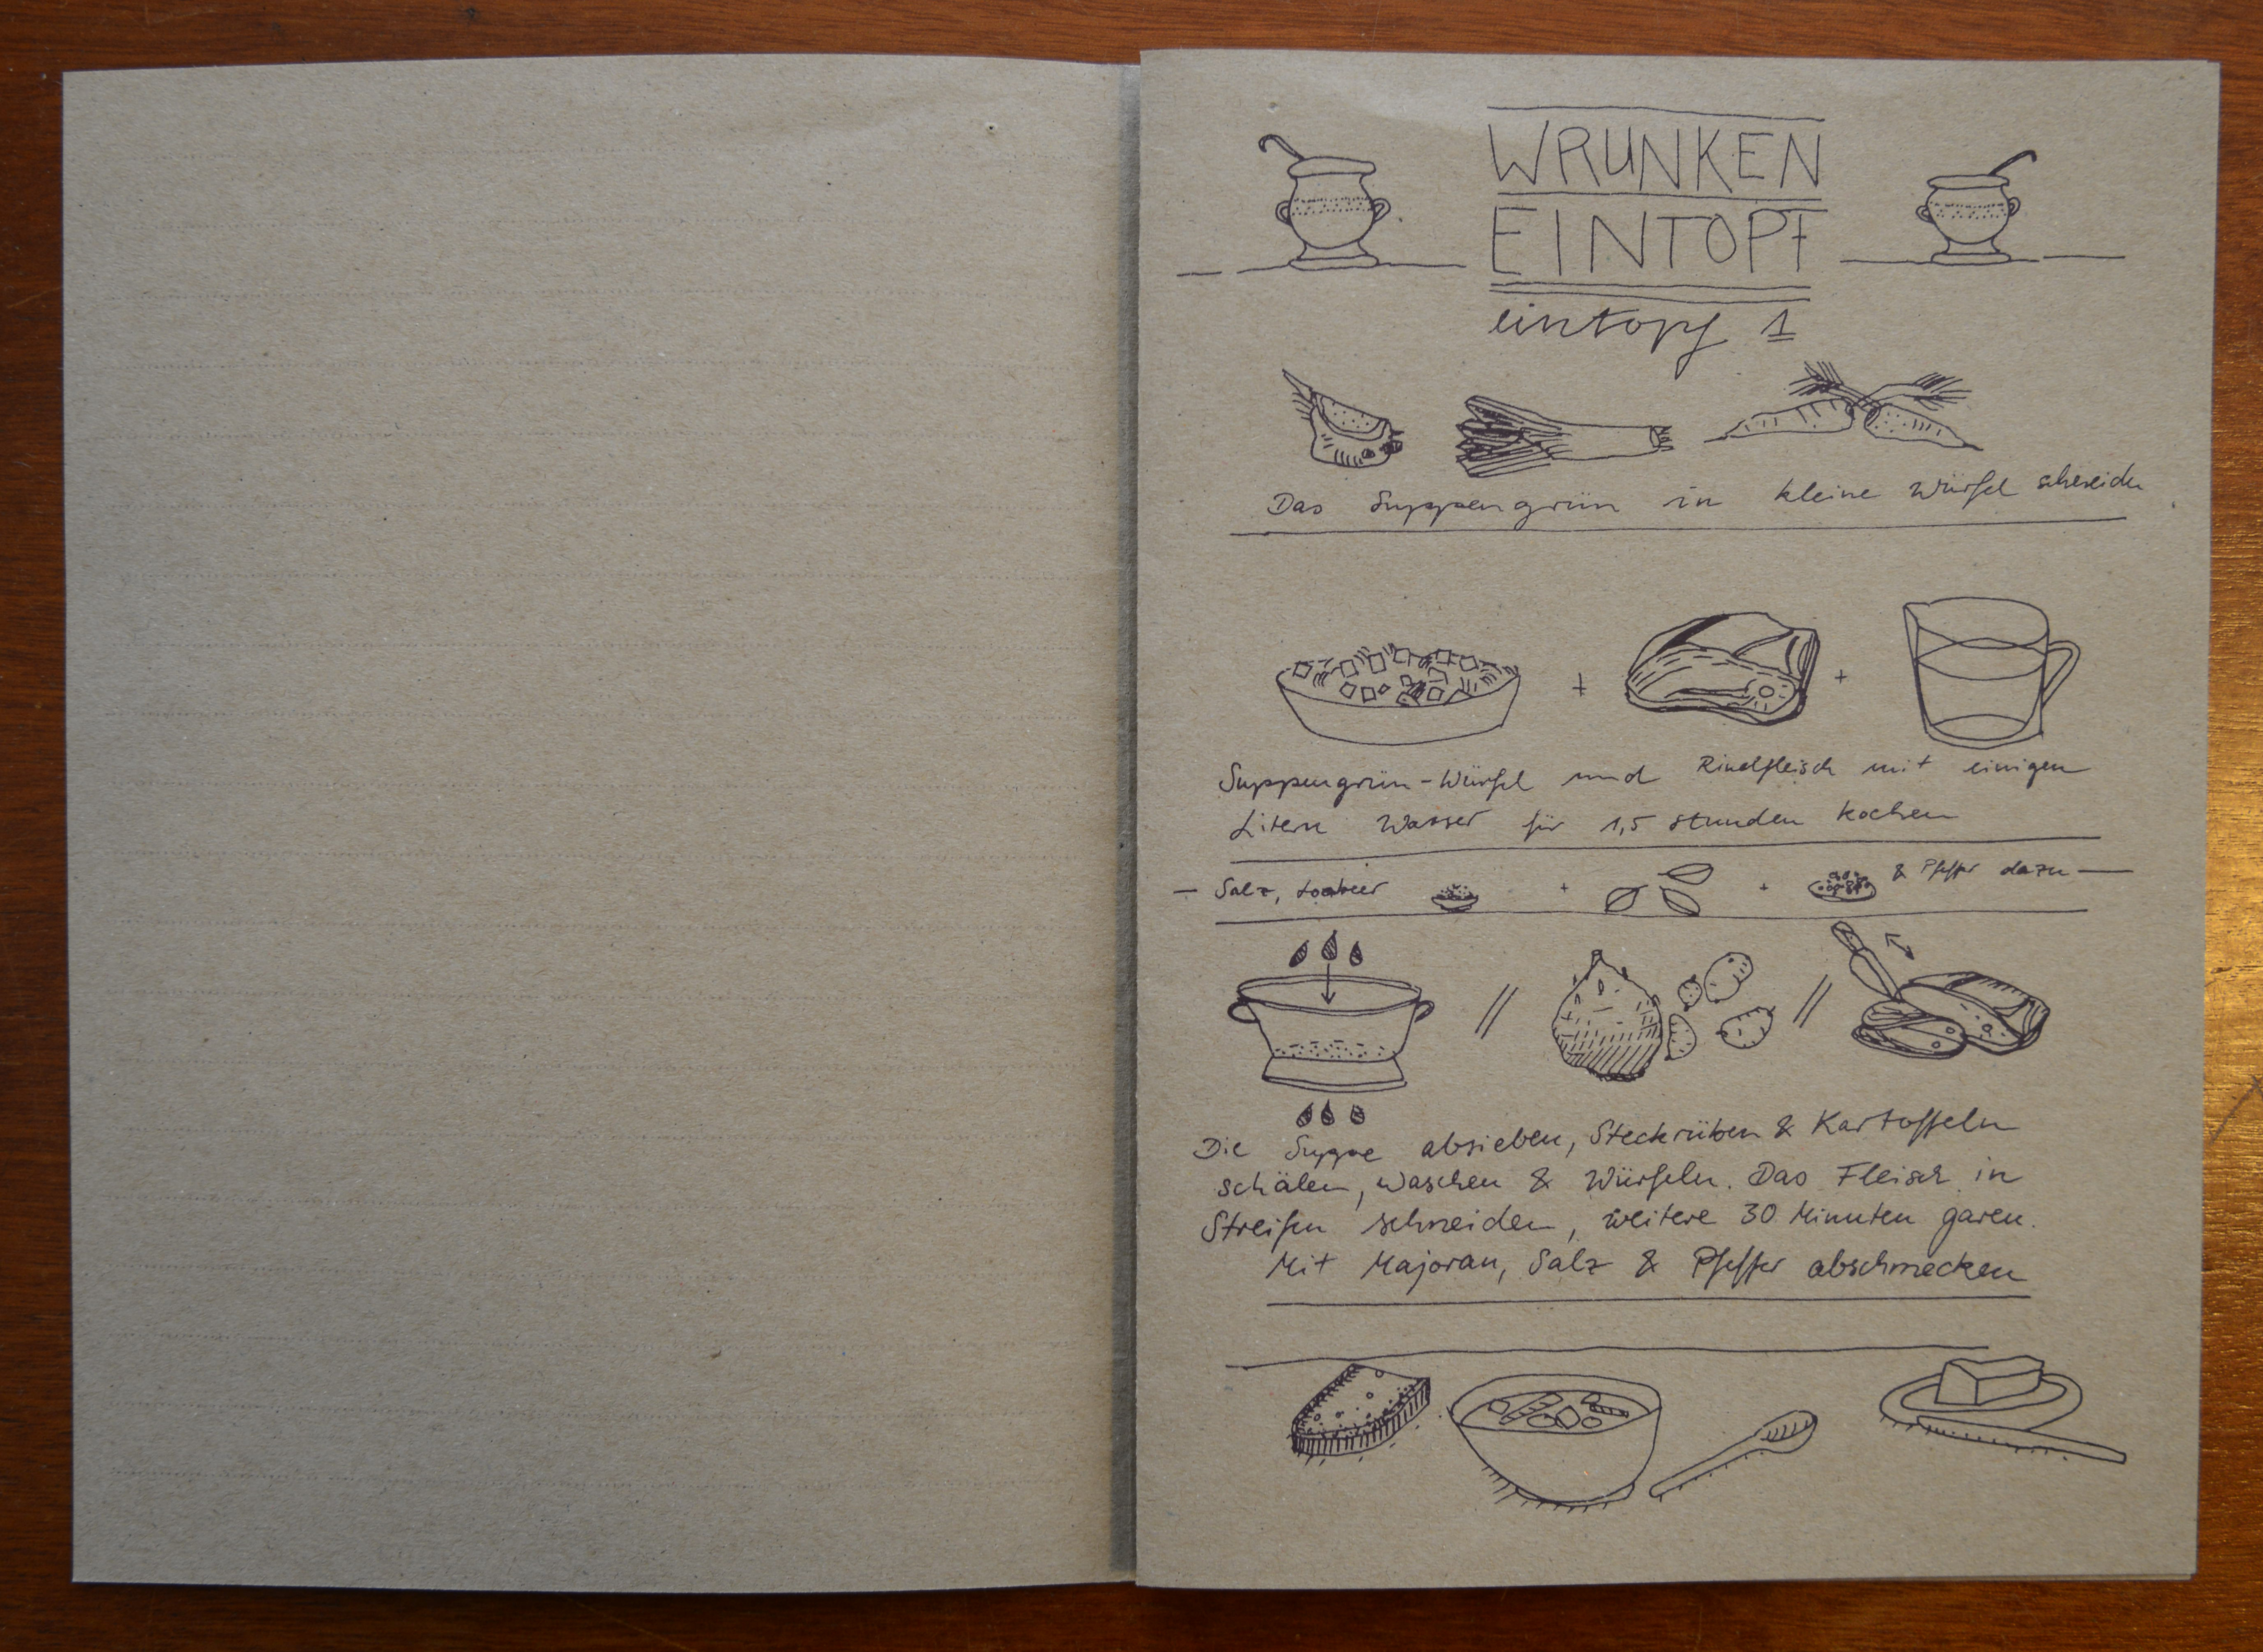 WRUNKEN
EINTOPF
eintopf 1
Das Suppengrün in kleine Würfel schneiden
Suppengrün-Würfel und Rindfleisch mit einigen
Litern Wasser für 1,5 stunden kochen
- Salz, Lorbeer + + & Pfeffer dazu -
Die Suppe absieben, Steckrüben & Kartoffeln
schälen, waschen & Würfeln. Das Fleisch in
Streifen schneiden, weitere 30 Minuten garen.
Mit Majoran, Salz & Pfeffer abschmecken